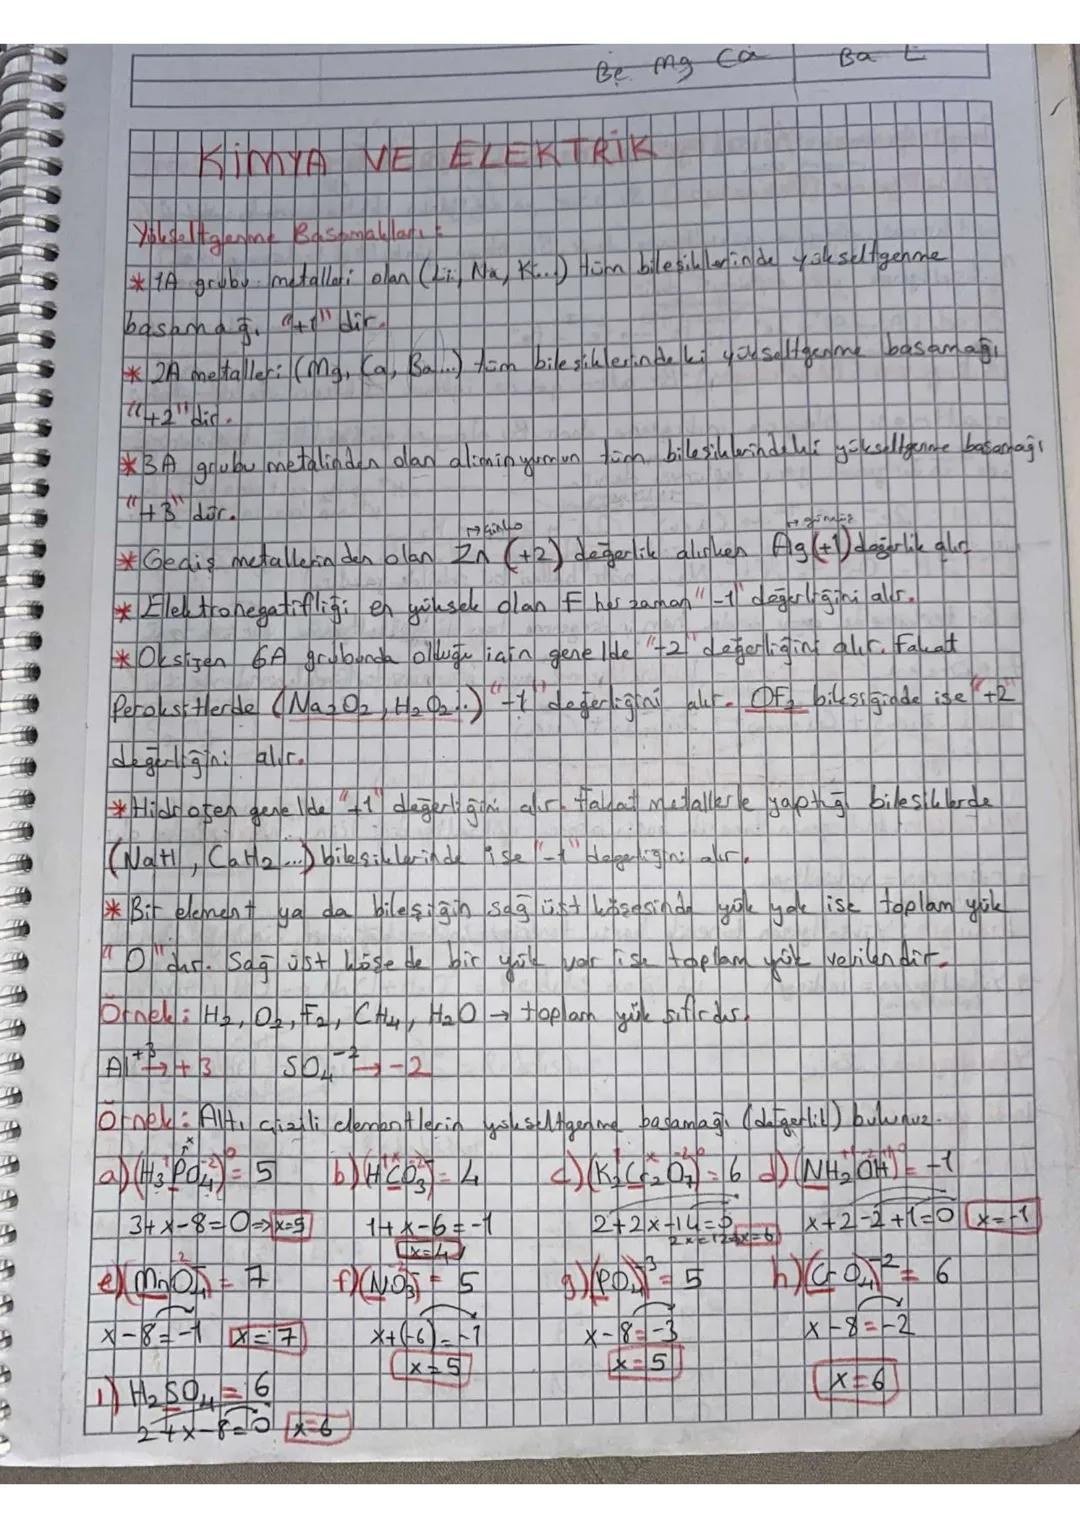 Be Mg Ca Ba
KİMYA VE ELEKTRİK
Yükseltgenme Basamakları :
* 1A grubu metalleri olan (Li, Na, K...) tüm bileşiklerinde yükseltgenme
basamağı "+1" dir.
* 2A metalleri (Mg, Ca, Ba...) tüm bileşiklerindeki yükseltgenme basamağı
"+2" dir.
* 3A grubu metalinden olan aliminyumun tüm bileşiklerindeki yükseltgenme basamağı
"+3" dür.
→ Çinko → gümüş
* Geçiş metallerinden olan Zn (+2) değerlik alırken Ag (+1) değerlik alır
* Elektronegatifliği en yüksek olan F her zaman "-1" değerliğini alır.
* Oksijen 6A grubunda olduğu için genelde "-2" değerliğini alır. Fakat
Peroksitlerde (Na₂O₂, H₂O₂..) "-1" değerliğini alır. OF₂ bileşiğinde ise "+2"
değerliğini alır.
* Hidrojen genelde "+1" değerliğini alır. Fakat metallerle yaptığı bileşiklerde
(NaH, CaH₂...) bileşiklerinde ise "-1" değerliğini alır.
* Bir element ya da bileşiğin sağ üst köşesinde yük yok ise toplam yük
"0" dır. Sağ üst köşede bir yük var ise toplam yük verilendir.
Örnek : H₂, O₂, F₂, CH₄, H₂O → toplam yük sıfırdır.
Al⁺³ → +3 SO₄⁻² → -2
Örnek : Altı çizili elementlerin yükseltgenme basamağı (değerlik) bulunuz.
a) (H₃PO₄)⁰ = 5 b) (HCO₃)⁻ = 4 c) (K₂Cr₂O₇)⁰ = 6 d) (NH₂OH)⁰ = -1
3+x-8=0 ⇒ x=5 1+x-6=-1 2+2x-14=0 x+2-2+1=0 x=-1
x=4 2x=12 x=6
e) (MnO₄)⁻ = 7 f) (NO₃)⁻ = 5 g) (PO₄)⁻³ = 5 h) (CrO₄)⁻² = 6
x-8=-1 x=7 x+(-6)=-1 x-8=-3 x-8=-2
x=5 x=5 x=6
ı) H₂SO₄ = 6
2+x-8=0 x=6